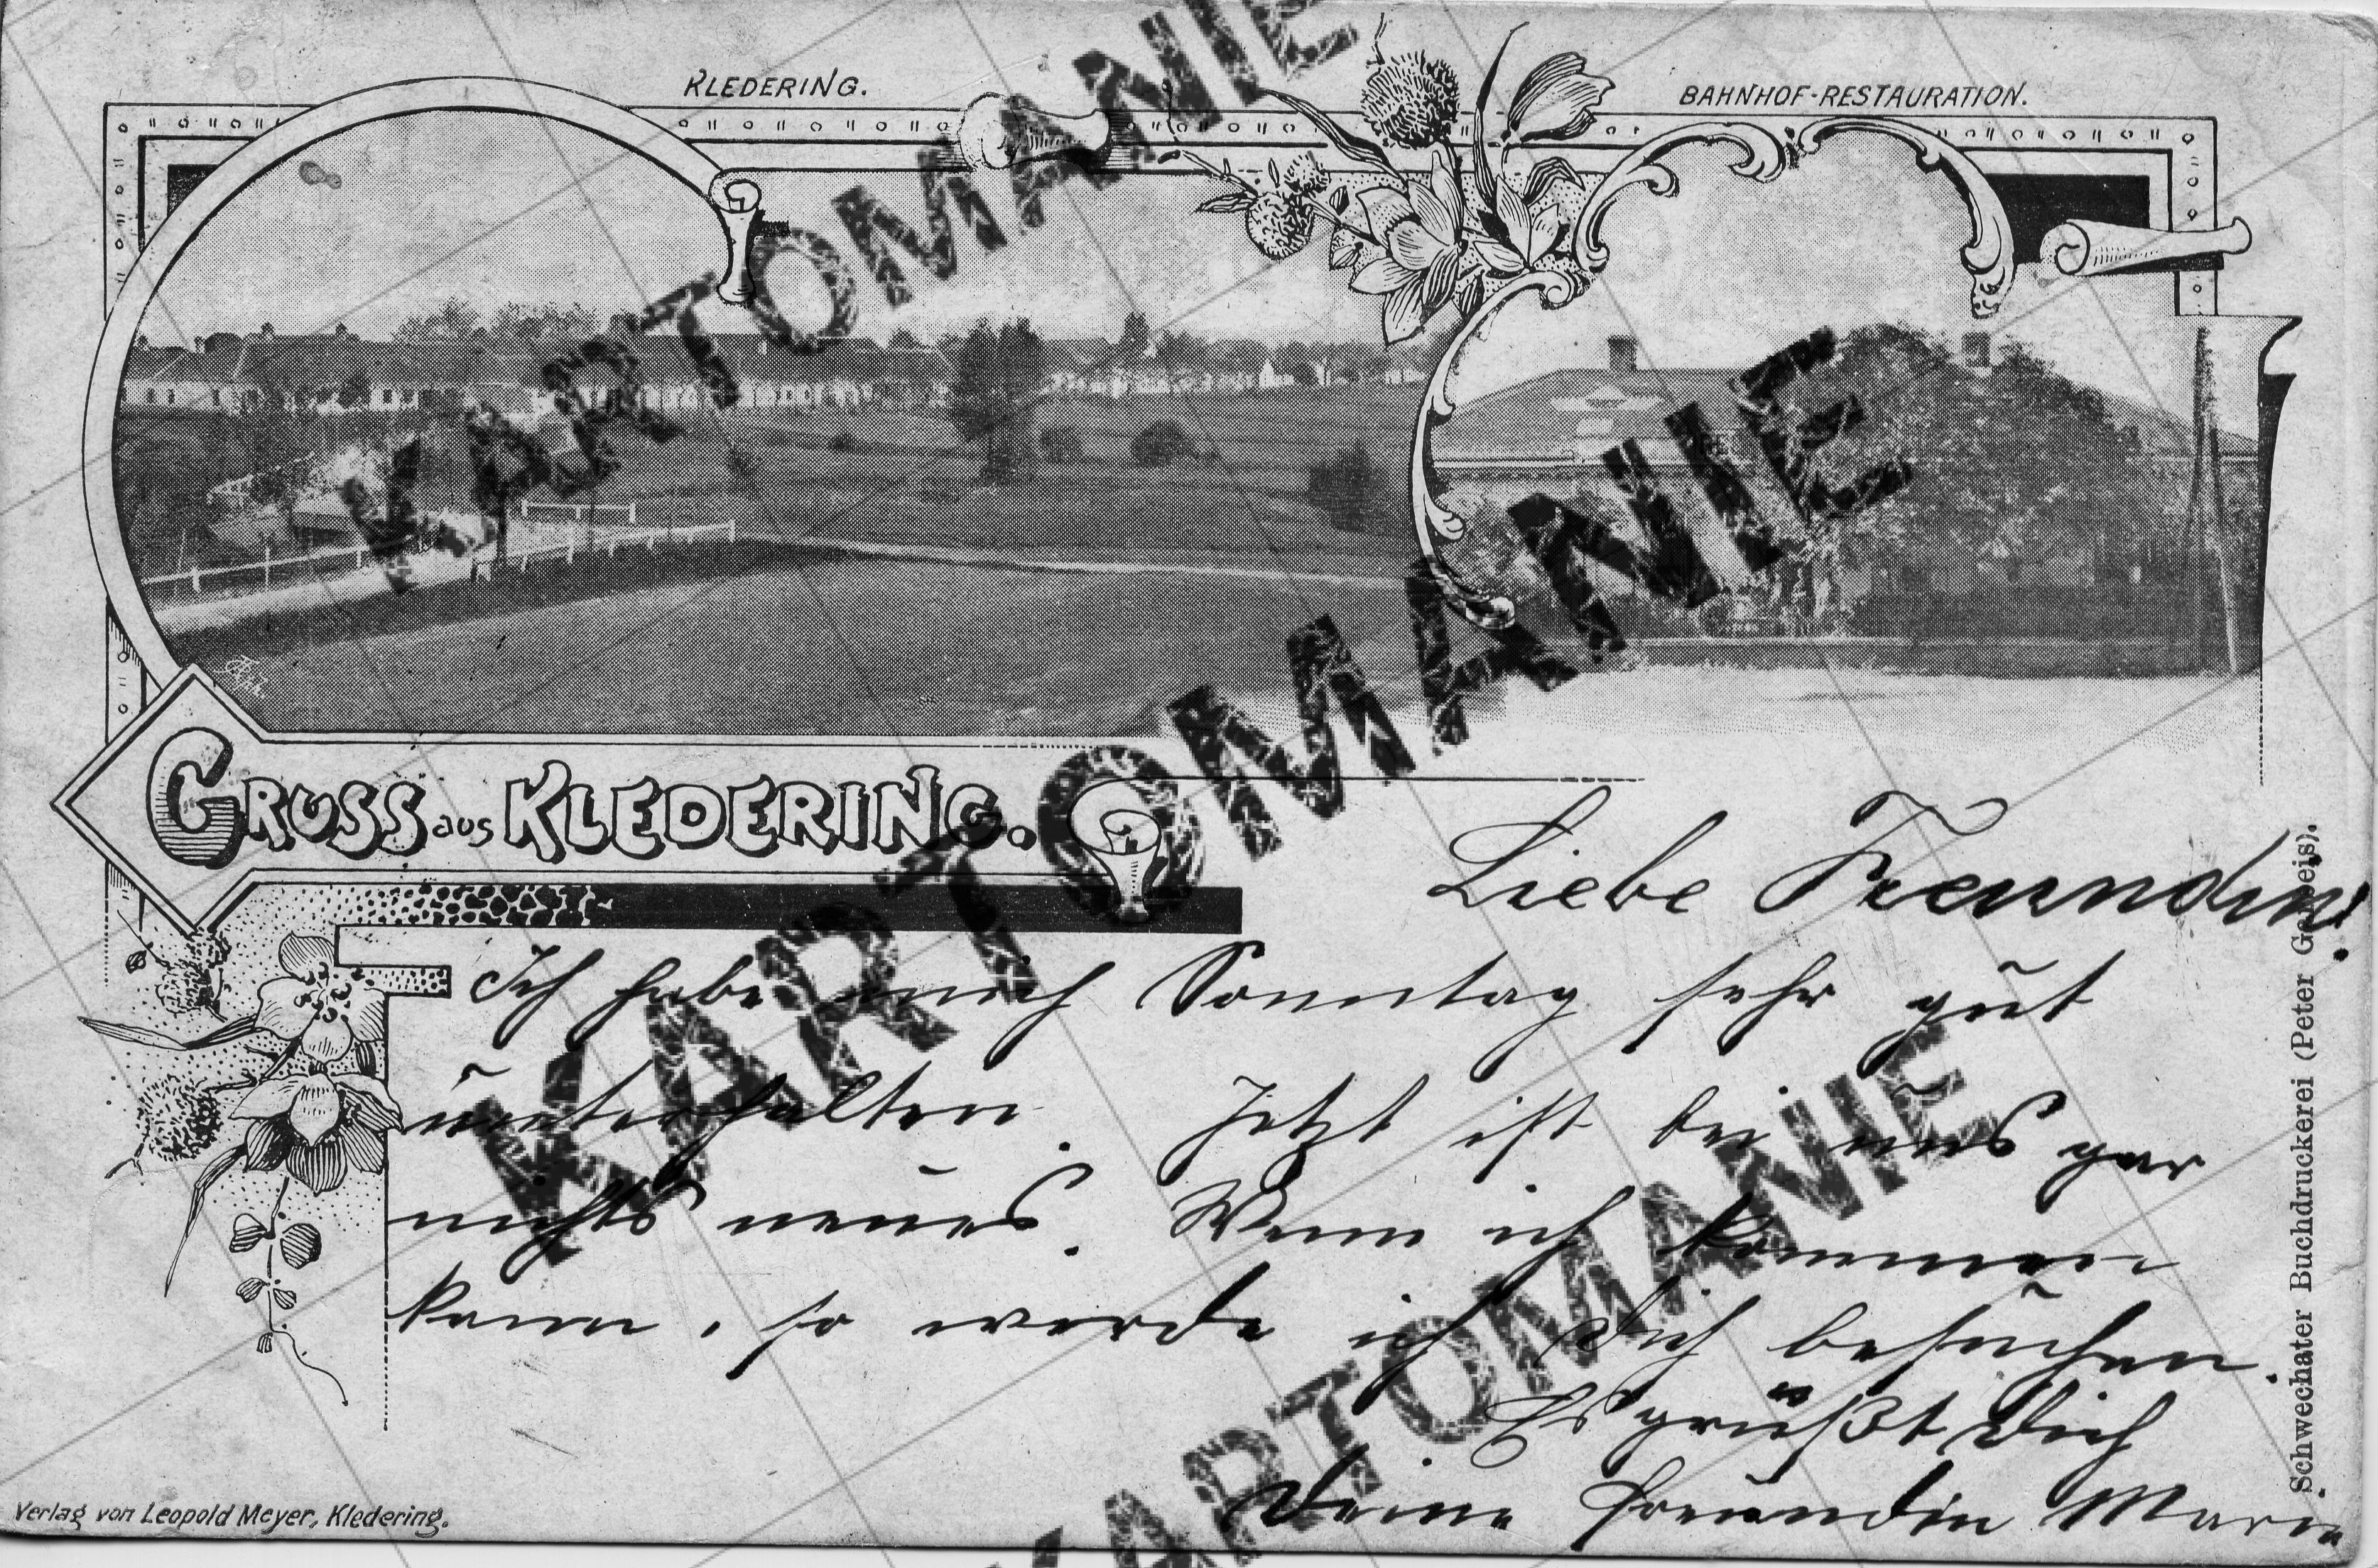 KLEDERING.
BAHNHOF-RESTAURATION.
KARTOMANIE
KARTOMANIE
KARTOMANIE
GRUSS aus KLEDERING.
Liebe Freundin!
Ich habe mich Sonntag sehr gut
unterhalten. Jetzt ist bei uns gar
nichts neues. Wenn ich kommen
kann, so werde ich Dich besuchen.
Es grüßt Dich
Deine Freundin Marie
Verlag von Leopold Meyer, Kledering.
Schwechater Buchdruckerei (Peter